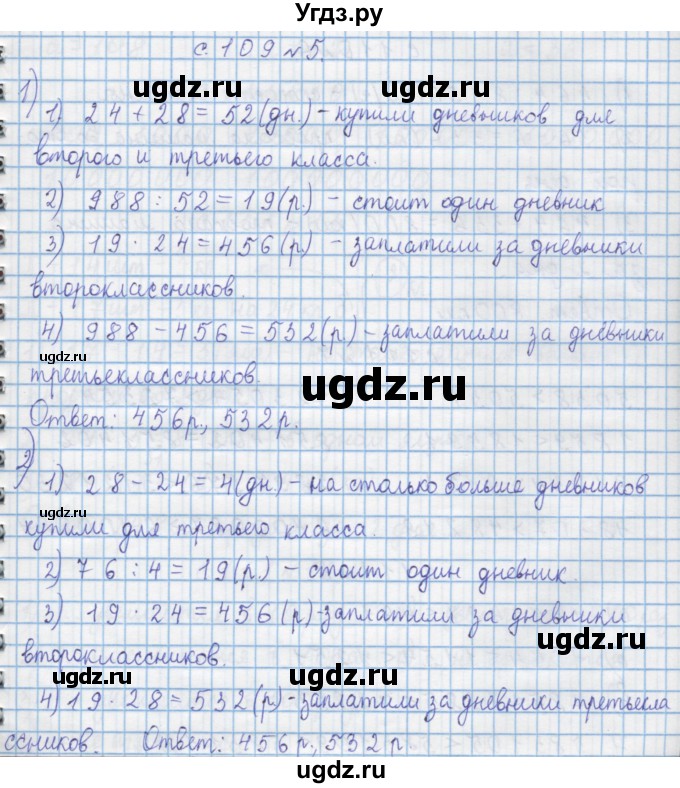 Угдз.ру
с. 109 №5.
1)
1) 24 + 28 = 52 (дн.) – купили дневников для
второго и третьего класса.
2) 988 : 52 = 19 (р.) – стоит один дневник
3) 19 · 24 = 456 (р.) – заплатили за дневники
второклассников.
4) 988 – 456 = 532 (р) – заплатили за дневники
третьеклассников.
Ответ: 456 р., 532 р.
2)
1) 28 – 24 = 4 (дн) – на столько больше дневников
купили для третьего класса.
2) 76 : 4 = 19 (р.) – стоит один дневник.
3) 19 · 24 = 456 (р) – заплатили за дневники
второклассников.
4) 19 · 28 = 532 (р.) – заплатили за дневники третьекла
ссников. Ответ: 456 р., 532 р
ugdz.ru ugdz.ru
ugdz.ru ugdz.ru
ugdz.ru ugdz.ru
ugdz.ru
ugdz.ru
ugdz.ru
ugdz.ru
ugdz.ru
ugdz.ru
ugdz.ru